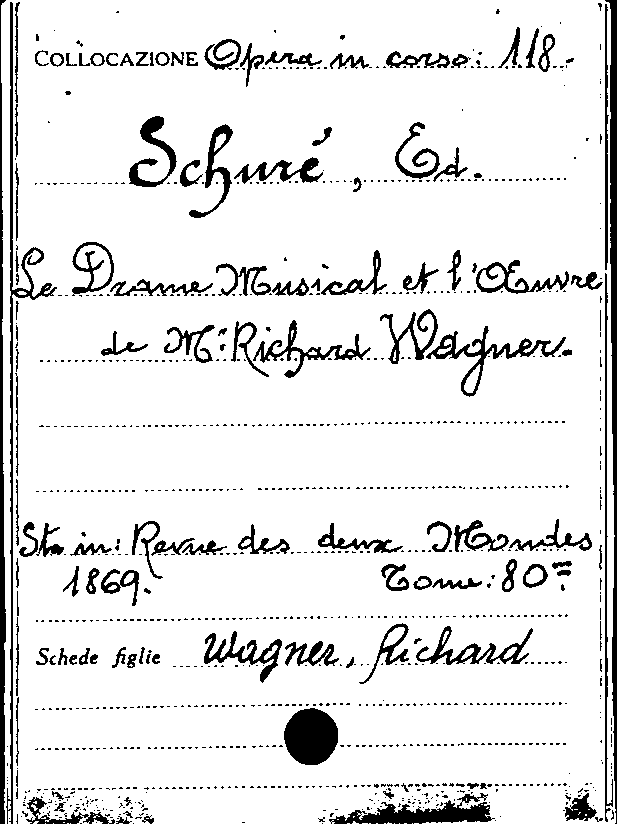 COLLOCAZIONE Opera in corso: 118.
Schuré, Ed.
Le Drame Musical et l'Œuvre
de Mr: Richard Wagner.
Sta in: Revue des deux Mondes
1869. Tome: 80me.
Schede figlie Wagner, Richard